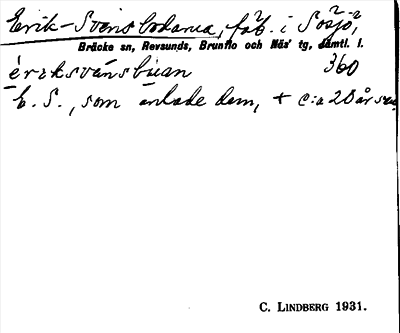 Erik-Svensbodarna, fäb. i Sösjö,
Bräcke sn, Revsunds, Brunflo och Näs' tg, Jämtl. l.
ériksvänsbúan 360
E. S., som anlade dem, † c:a 20 år sen.
C. LINDBERG 1931.